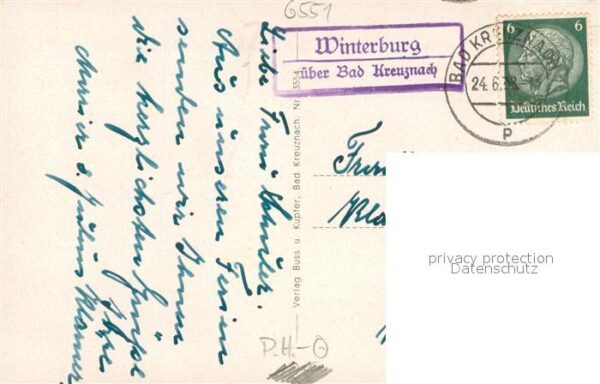 6551
Winterburg
über Bad Kreuznach
BAD KREUZNACH
24.6.38
P
6 6
Deutsches Reich
Liebe Frau
Aus unseren Ferien
senden wir Ihnen
die herzlichsten Grüße
Ihre
Verlag Buss u. Kupfer, Bad Kreuznach, Nr. 3554
privacy protection
Datenschutz
P.H.-O